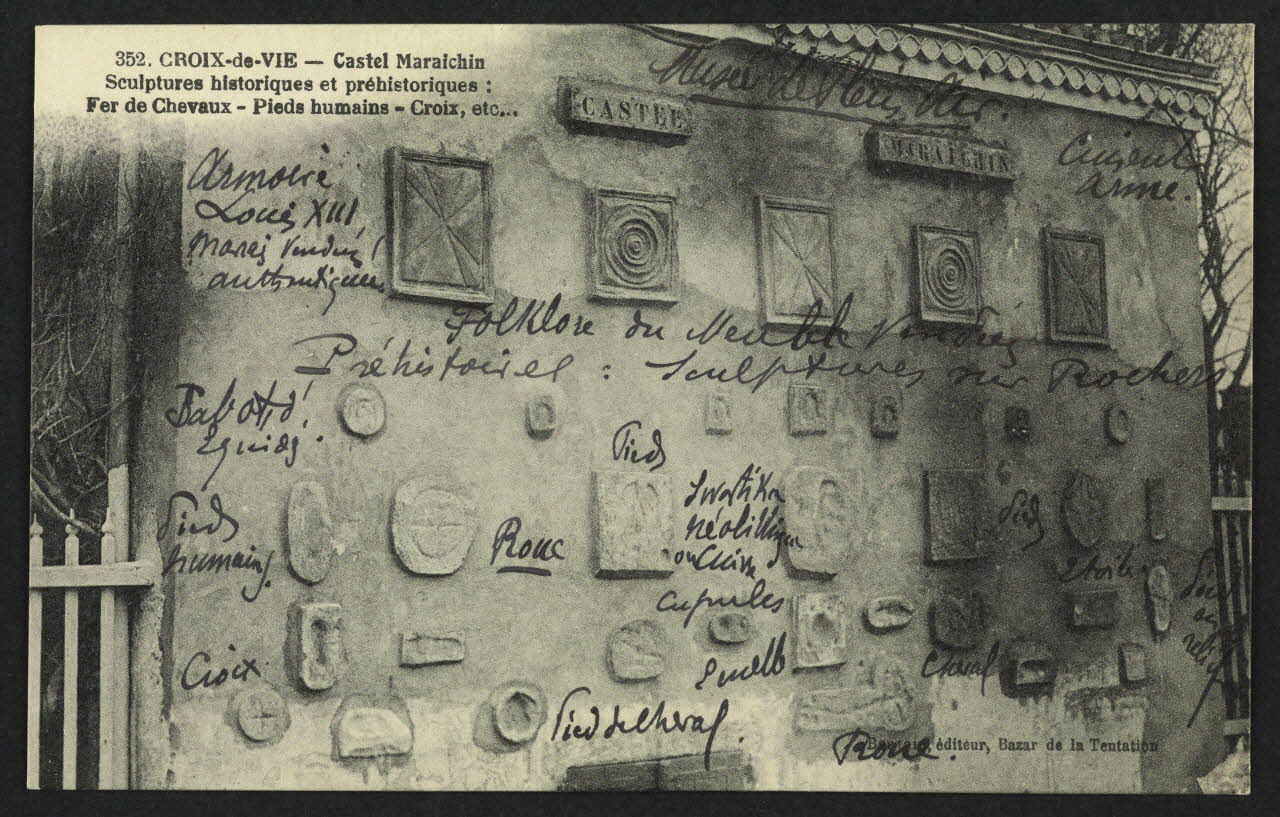 352. CROIX-de-VIE — Castel Maraichin
Sculptures historiques et préhistoriques :
Fer de Chevaux - Pieds humains - Croix, etc...
Musée de Plein Air.
CASTEL
MARAICHIN
Ciment
armé.
Armoire
Louis XIII,
Marais Vendéen
authentiques
Folklore du Meuble Vendéen
Préhistoires : Sculptures sur Rochers
Sabots d'
Equidés.
Pieds
Pieds
humains.
Roue
Swastika
néolithique
ou
cupules
Pieds
Etoile
Pied
en
relief
Croix
Cheval
Pied de Cheval.
Roue.
éditeur, Bazar de la Tentation